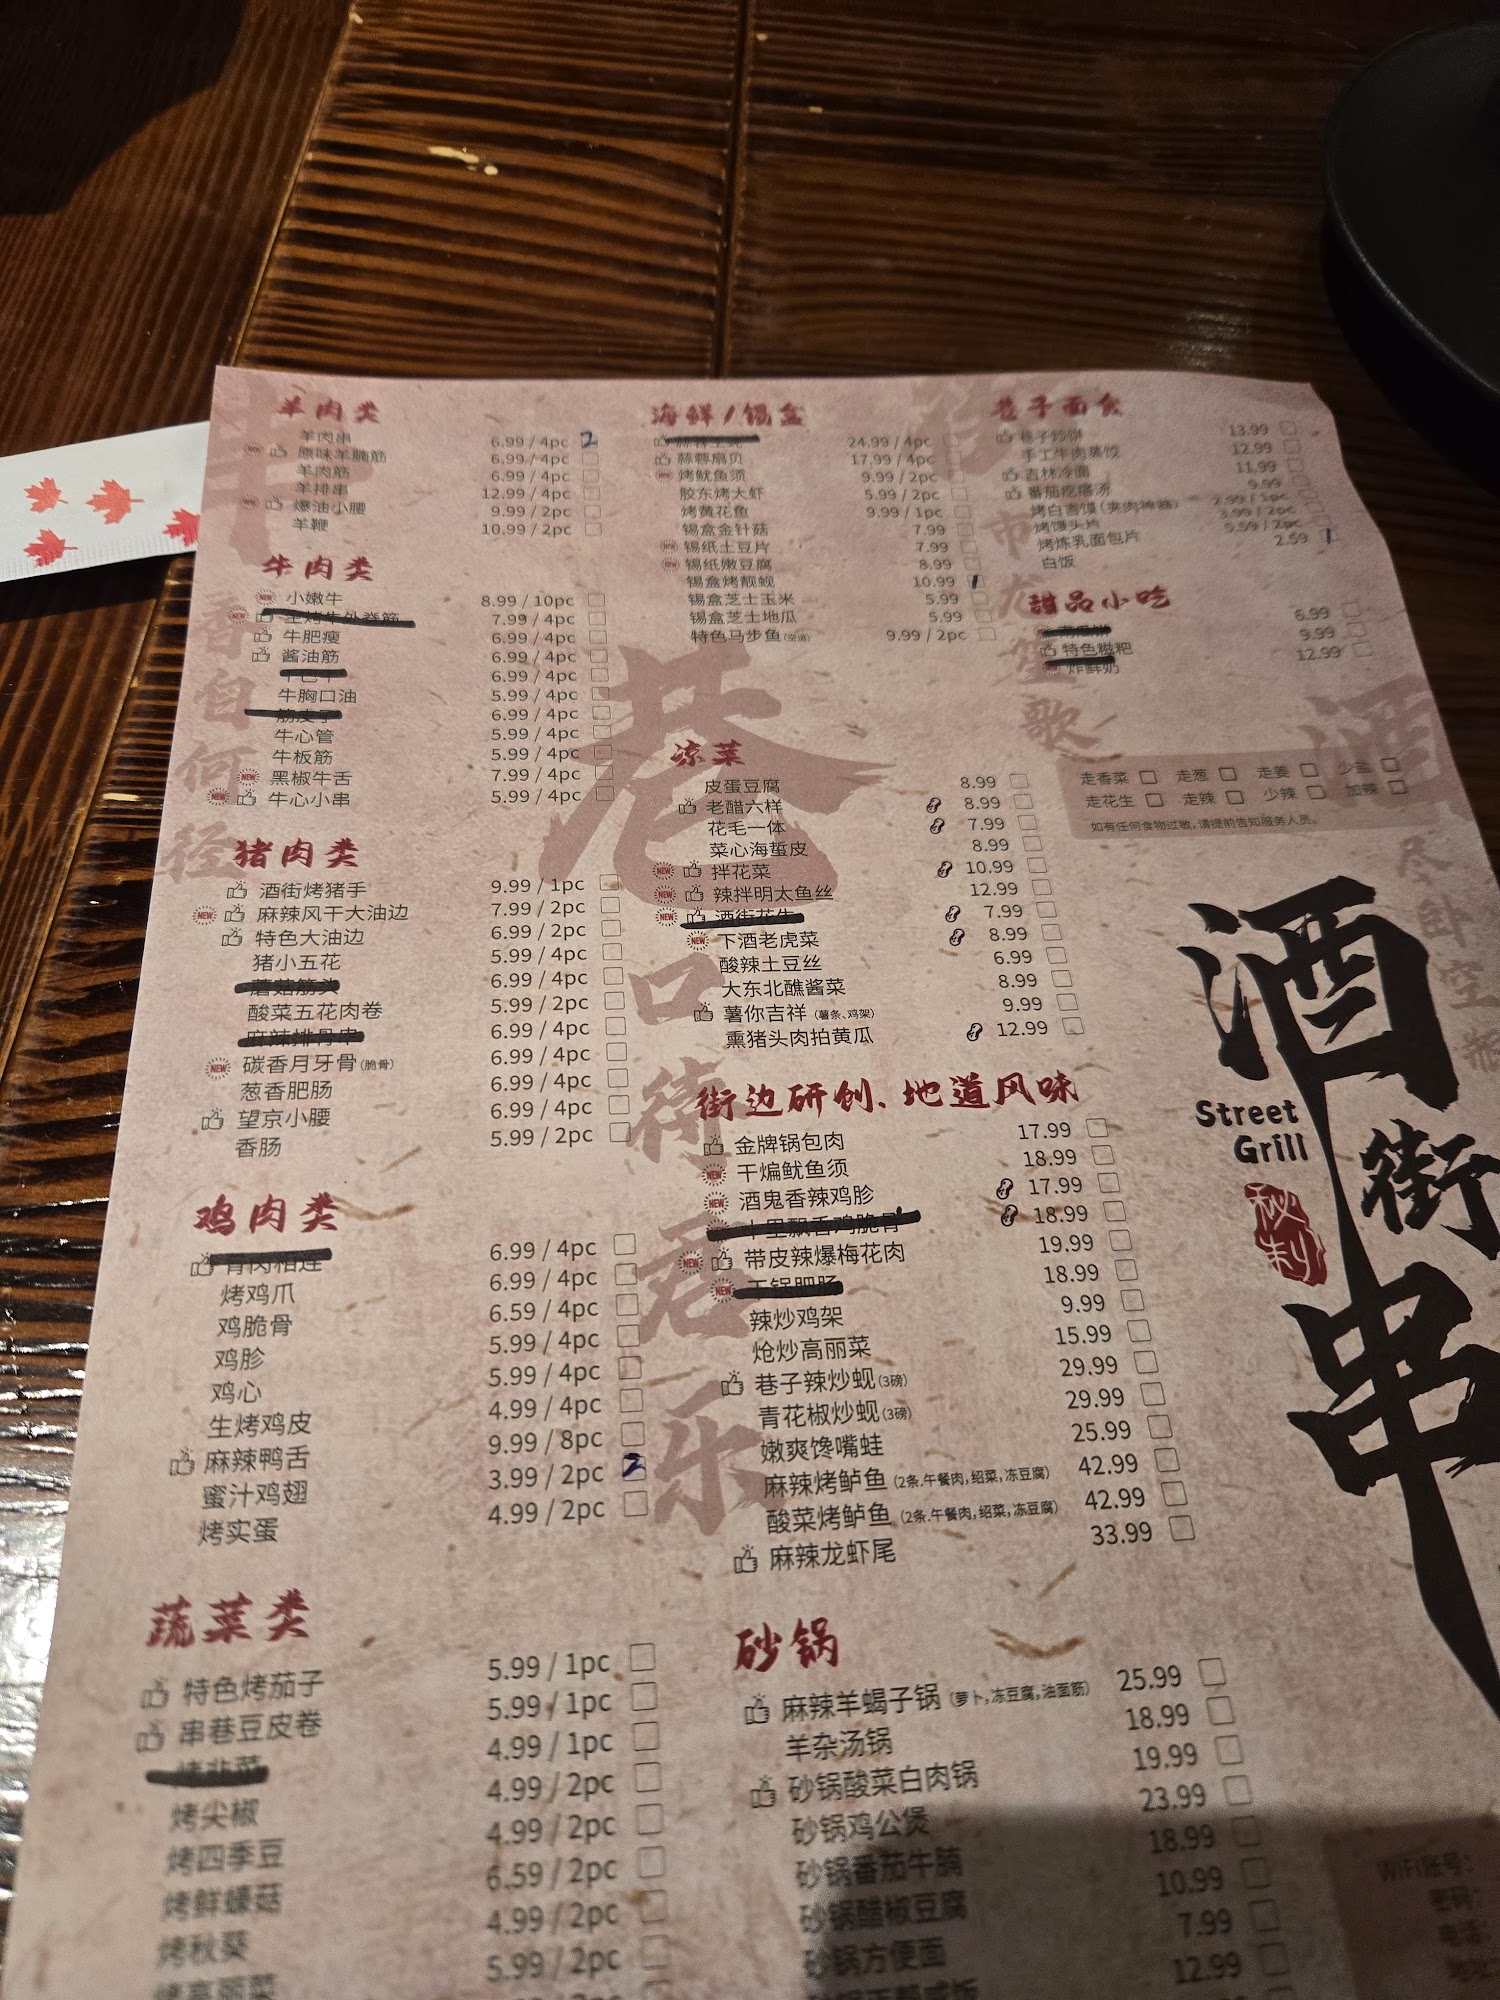 羊肉类
羊肉串 6.99 / 4pc 2
NEW 原味羊腩筋 6.99 / 4pc
羊肉筋 6.99 / 4pc
羊排串 12.99 / 4pc
NEW 爆油小腰 9.99 / 2pc
羊鞭 10.99 / 2pc
牛肉类
NEW 小嫩牛 8.99 / 10pc
NEW 生烤牛外脊筋 7.99 / 4pc
牛肥瘦 6.99 / 4pc
酱油筋 6.99 / 4pc
6.99 / 4pc
牛胸口油 5.99 / 4pc
筋皮子 6.99 / 4pc
牛心管 5.99 / 4pc
牛板筋 5.99 / 4pc
NEW 黑椒牛舌 7.99 / 4pc
NEW 牛心小串 5.99 / 4pc
猪肉类
酒街烤猪手 9.99 / 1pc
NEW 麻辣风干大油边 7.99 / 2pc
特色大油边 6.99 / 2pc
猪小五花 5.99 / 4pc
蘑菇筋头 6.99 / 4pc
酸菜五花肉卷 5.99 / 2pc
麻辣排骨串 6.99 / 4pc
NEW 碳香月牙骨(脆骨) 6.99 / 4pc
葱香肥肠 6.99 / 4pc
望京小腰 6.99 / 4pc
香肠 5.99 / 2pc
鸡肉类
骨肉相连 6.99 / 4pc
烤鸡爪 6.99 / 4pc
鸡脆骨 6.59 / 4pc
鸡胗 5.99 / 4pc
鸡心 5.99 / 4pc
生烤鸡皮 4.99 / 4pc
麻辣鸭舌 9.99 / 8pc
蜜汁鸡翅 3.99 / 2pc 2
烤实蛋 4.99 / 2pc
蔬菜类
特色烤茄子 5.99 / 1pc
串巷豆皮卷 5.99 / 1pc
烤韭菜 4.99 / 1pc
烤尖椒 4.99 / 2pc
烤四季豆 4.99 / 2pc
烤鲜蠔菇 6.59 / 2pc
烤秋葵 4.99 / 2pc
烤高丽菜 5.99 / 2pc
海鲜 / 锡盒
蒜蓉生蚝 24.99 / 4pc
蒜蓉扇贝 17.99 / 4pc
NEW 烤鱿鱼须 9.99 / 2pc
胶东烤大虾 5.99 / 2pc
烤黄花鱼 9.99 / 1pc
锡盒金针菇 7.99
NEW 锡纸土豆片 7.99
NEW 锡纸嫩豆腐 8.99
锡盒烤靓蚬 10.99 1
锡盒芝士玉米 5.99
锡盒芝士地瓜 5.99
特色马步鱼 9.99 / 2pc
凉菜
皮蛋豆腐 8.99
老醋六样 8.99
花毛一体 7.99
菜心海蜇皮 8.99
NEW 拌花菜 10.99
NEW 辣拌明太鱼丝 12.99
NEW 酒街花生 7.99
NEW 下酒老虎菜 8.99
酸辣土豆丝 6.99
大东北蘸酱菜 8.99
薯你吉祥 (薯条、鸡架) 9.99
熏猪头肉拍黄瓜 12.99
街边研创、地道风味
金牌锅包肉 17.99
NEW 干煸鱿鱼须 18.99
NEW 酒鬼香辣鸡胗 17.99
十里飘香鸡脆骨 18.99
NEW 带皮辣爆梅花肉 19.99
NEW 干锅肥肠 18.99
辣炒鸡架 9.99
炝炒高丽菜 15.99
巷子辣炒蚬(3磅) 29.99
青花椒炒蚬(3磅) 29.99
嫩爽馋嘴蛙 25.99
麻辣烤鲈鱼 (2条.午餐肉,绍菜,冻豆腐) 42.99
酸菜烤鲈鱼 (2条.午餐肉,绍菜,冻豆腐) 42.99
麻辣龙虾尾 33.99
砂锅
麻辣羊蝎子锅 (萝卜,冻豆腐,油面筋) 25.99
羊杂汤锅 18.99
砂锅酸菜白肉锅 19.99
砂锅鸡公煲 23.99
砂锅番茄牛腩 18.99
砂锅醋椒豆腐 10.99
砂锅方便面 7.99
12.99
巷子面食
巷子炒饼 13.99
手工牛肉蒸饺 12.99
吉林冷面 11.99
番茄疙瘩汤 9.99
烤白吉馍 (夹肉神器) 2.99 / 1pc
烤馒头片 3.99 / 2pc
烤炼乳面包片 5.59 / 2pc
白饭 2.59 1
甜品小吃
南瓜饼 6.99
特色糍粑 9.99
炸鲜奶 12.99
走香菜 走葱 走姜 少盐
走花生 走辣 少辣 加辣
如有任何食物过敏,请提前告知服务人员。
酒街串
Street
Grill
秘制
串香自何径
巷口待君乐
夜市龙蛋歌
酒尽卧空瓶
WIFI账号:
密码:
电话:
地址: